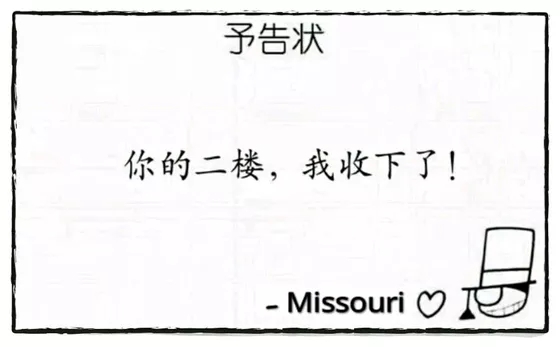 予告状
你的二楼，我收下了！
- Missouri ♡